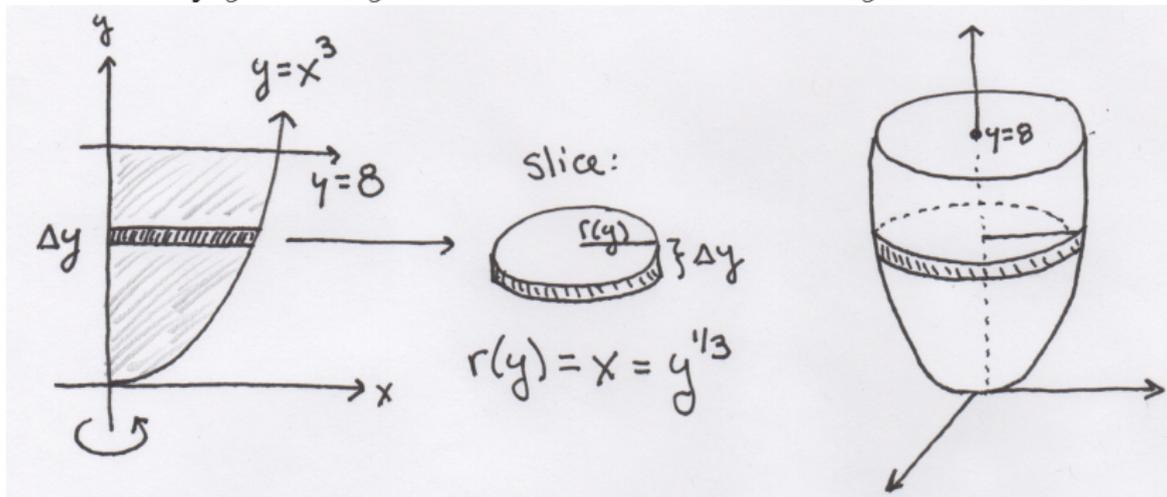 y
y=x³
y=8
Δy
x
slice:
r(y)
}Δy
r(y) = x = y^{1/3}
y=8